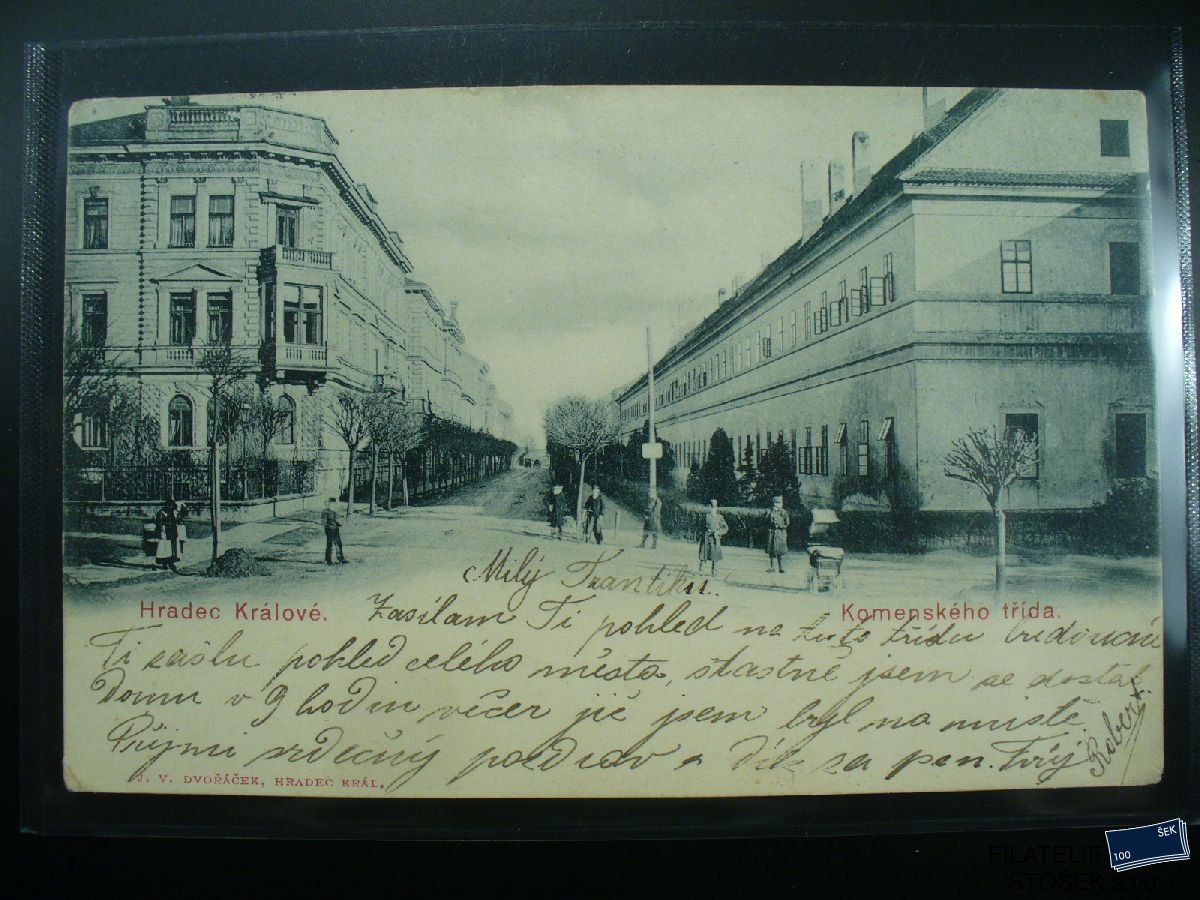 Milý Frantíku.
Hradec Králové.
Komenského třída.
Zasílam Ti pohled na tuto třídu budoucně
Ti zašlu pohled celého města, šťastně jsem se dostal
Domu v 9 hodin večer již jsem byl na místě.
Přijmi srdečný pozdrav a dík za pen. Tvůj
Robert.
J. V. DVOŘÁČEK, HRADEC KRÁL.
100 ŠEK
FILATELIE
STOŠEK s.r.o.